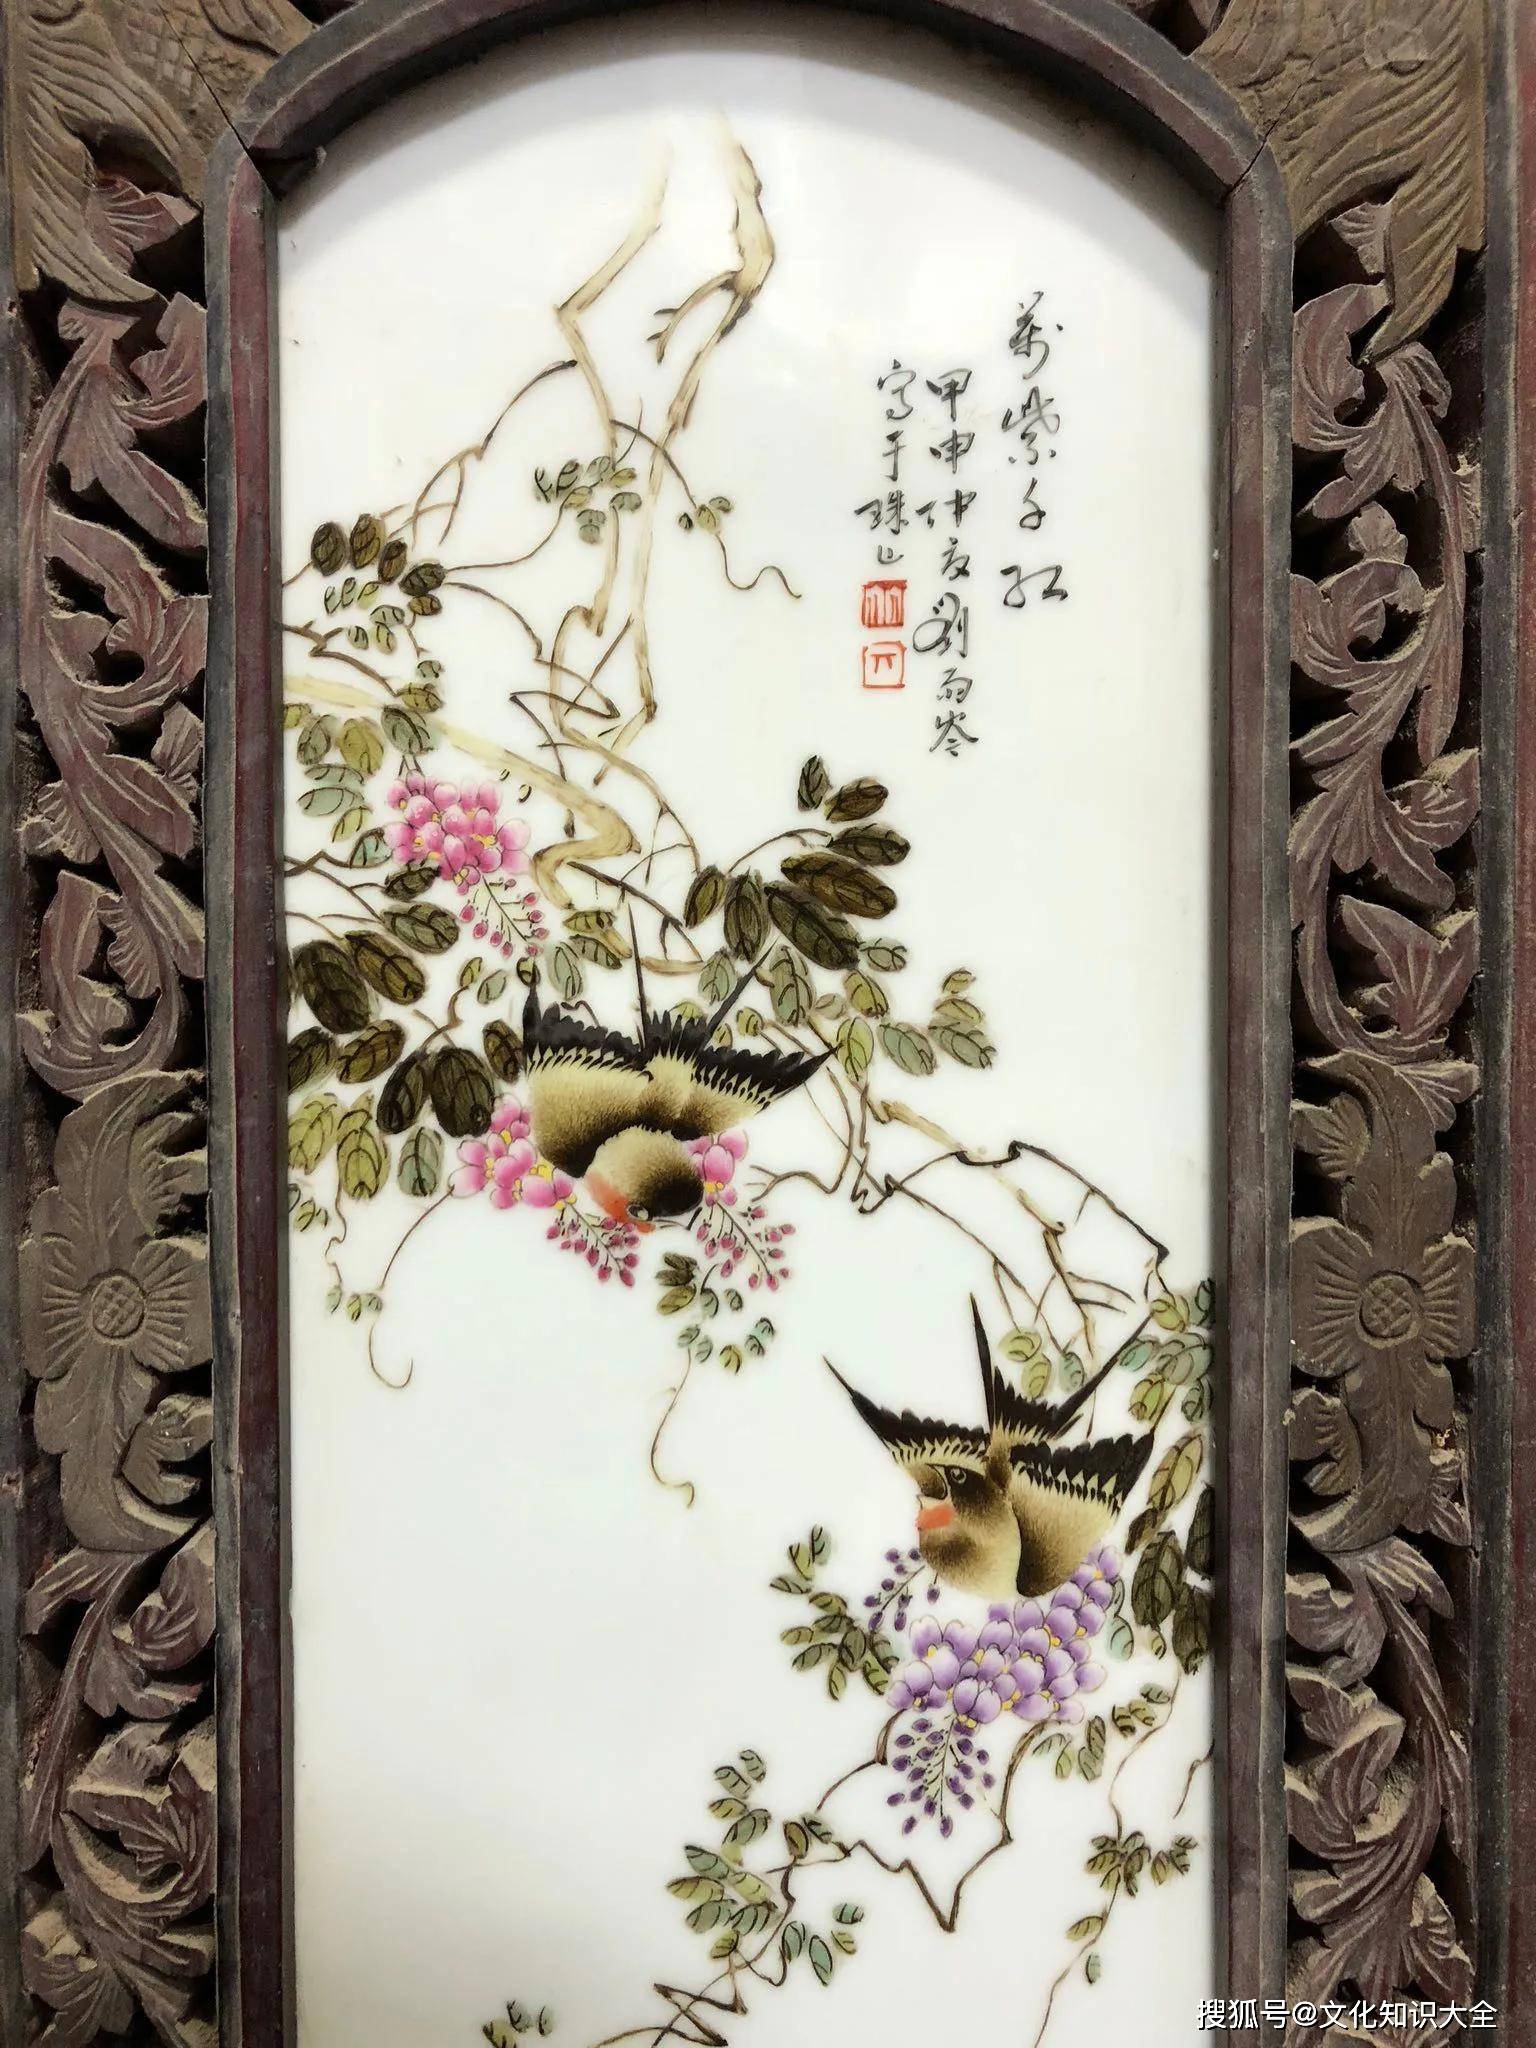 萬紫千红
甲申仲夏劉雨岑
寫于珠山
搜狐号@文化知识大全